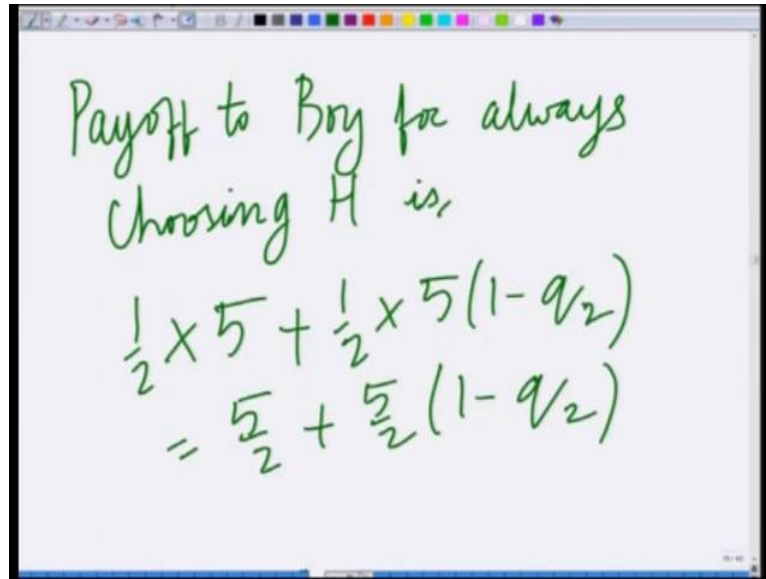 Payoff to Boy for always
Choosing H is,
1/2 × 5 + 1/2 × 5(1 - q₂)
= 5/2 + 5/2 (1 - q₂)